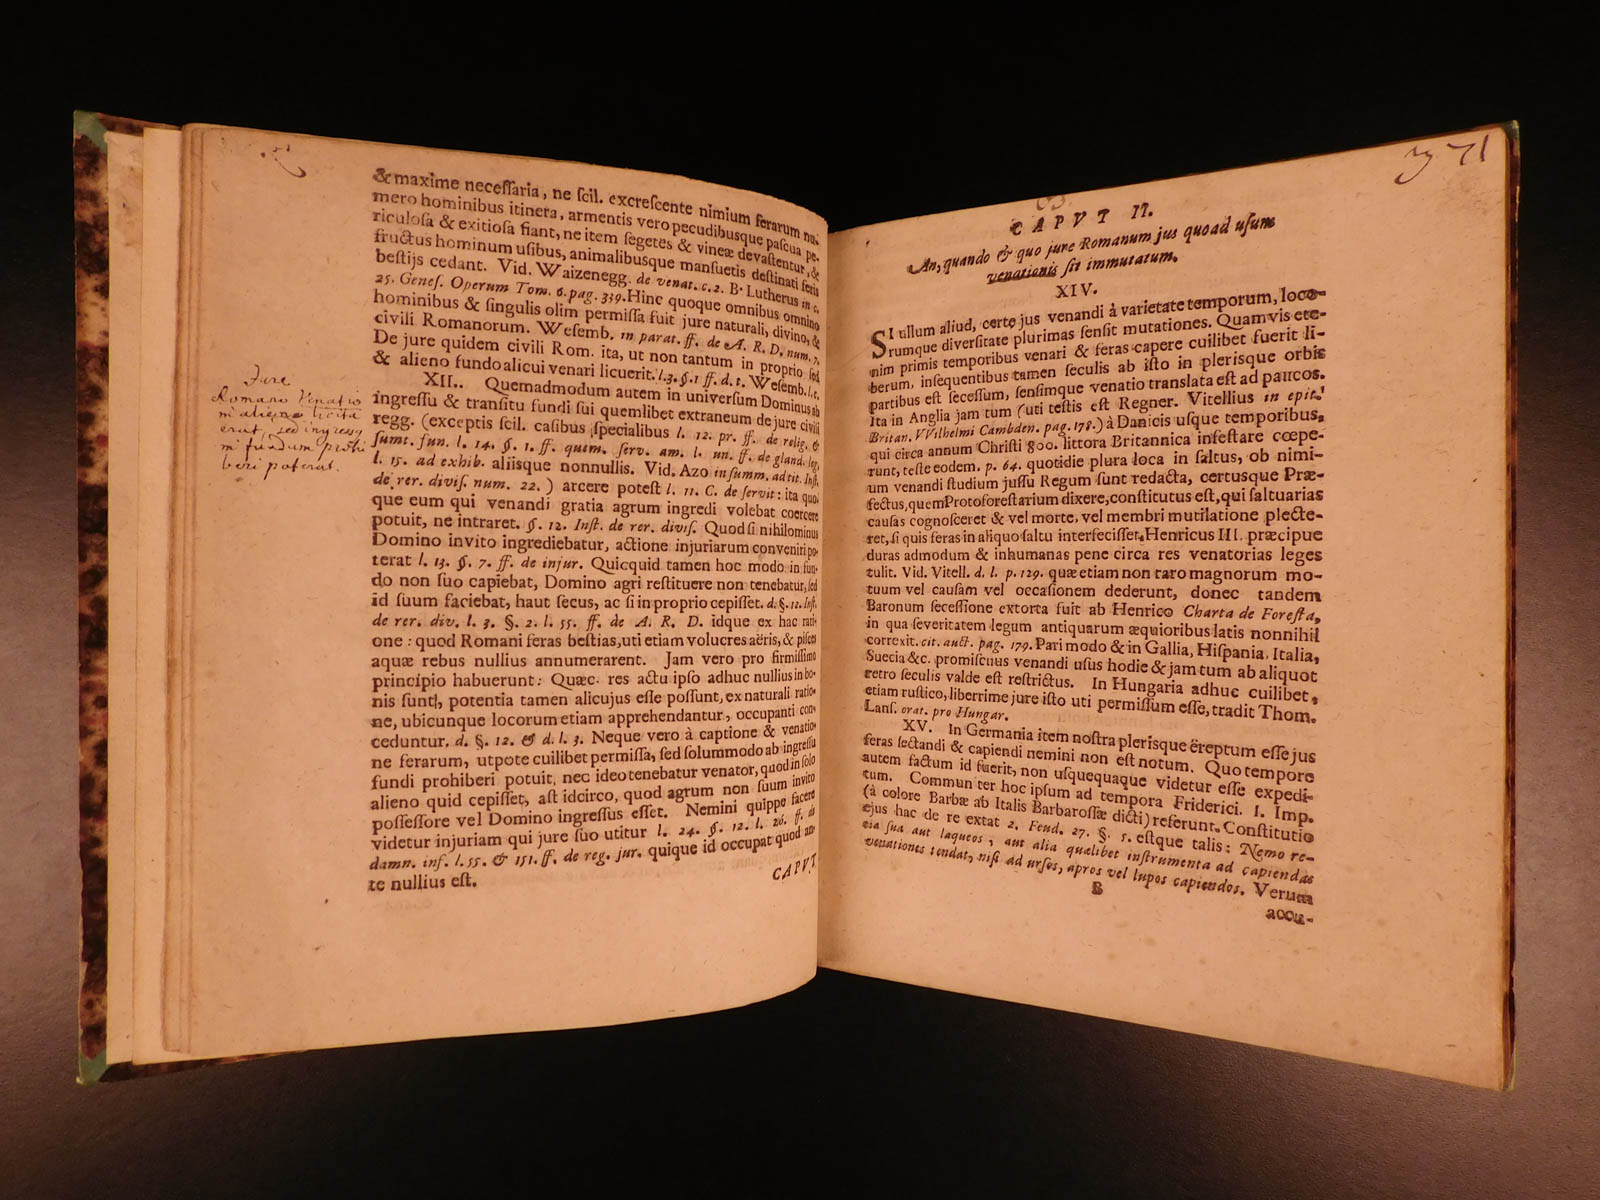 & maxime necessaria, ne scil. excrescente nimium ferarum nu-
mero hominibus itinera, armentis vero pecudibusque pascua pe-
riculosa & exitiosa fiant, ne item segetes & vineæ devastentur, &
fructus hominum usibus, animalibusque mansuetis destinati feris
bestijs cedant. Vid. Waizenegg. de venat. c. 2. B. Lutherus in c.
25. Genes. Operum Tom. 6. pag. 339. Hinc quoque omnibus omnino
hominibus & singulis olim permissa fuit jure naturali, divino, &
civili Romanorum. Wesemb. in parat. ff. de A. R. D. num. 7.
De jure quidem civili Rom. ita, ut non tantum in proprio sed
& alieno fundo alicui venari licuerit. l. 3. §. 1 ff. d. t. Wesemb. l. c.
XII.. Quemadmodum autem in universum Dominus ab
ingressu & transitu fundi sui quemlibet extraneum de jure civili
regg. (exceptis scil. casibus specialibus l. 12. pr. ff. de relig. &
sumt. fun. l. 14. §. 1. ff. quem. serv. am. l. un. ff. de gland. leg.
l. 15. ad exhib. aliisque nonnullis. Vid. Azo in summ. ad tit. Inst.
de rer. divis. num. 22.) arcere potest l. 11. C. de servit: ita quo-
que eum qui venandi gratia agrum ingredi volebat coercere
potuit, ne intraret. §. 12. Inst. de rer. divis. Quod si nihilominus
Domino invito ingrediebatur, actione injuriarum conveniri po-
terat l. 13. §. 7. ff. de injur. Quicquid tamen hoc modo in fun-
do non suo capiebat, Domino agri restituere non tenebatur, sed
id suum faciebat, haut secus, ac si in proprio cepisset. d. §. 12. Inst.
de rer. div. l. 3. §. 2. l. 55. ff. de A. R. D. idque ex hac rati-
one: quod Romani feras bestias, uti etiam volucres aëris, & pisces
aquæ rebus nullius annumerarent. Jam vero pro firmissimo
principio habuerunt: Quæc. res actu ipso adhuc nullius in bo-
nis sunt, potentia tamen alicujus esse possunt, ex naturali ratio-
ne, ubicunque locorum etiam apprehendantur, occupanti con-
ceduntur. d. §. 12. & d. l. 3. Neque vero à captione & venatio-
ne ferarum, utpote cuilibet permissa, sed solummodo ab ingressu
fundi prohiberi potuit, nec ideo tenebatur venator, quod in solo
alieno quid cepisset, ast idcirco, quod agrum non suum invito
possessore vel Domino ingressus esset. Nemini quippe facere
videtur injuriam qui jure suo utitur l. 24. §. 12. l. 26. ff. de
damn. inf. l. 55. & 151. ff. de reg. jur. quique id occupat quod an-
te nullius est.
CAPUT
Jure
Romano Venatio
in alieno licita
erat, sed ingressus
in fundum prohi
beri poterat.
71
CAPVT II.
An, quando & quo jure Romanum jus quoad usum
venationis sit immutatum.
XIV.
SI ullum aliud, certe jus venandi à varietate temporum, loco-
rumque diversitate plurimas sensit mutationes. Quamvis ete-
nim primis temporibus venari & feras capere cuilibet fuerit li-
berum, insequentibus tamen seculis ab isto in plerisque orbis
partibus est secessum, sensimque venatio translata est ad paucos.
Ita in Anglia jam tum (uti testis est Regner. Vitellius in epit.
Britan. VVilhelmi Cambden. pag. 178.) à Danicis usque temporibus,
qui circa annum Christi 800. littora Britannica infestare cœpe-
runt, teste eodem. p. 64. quotidie plura loca in saltus, ob nimi-
um venandi studium jussu Regum sunt redacta, certusque Præ-
fectus, quem Protoforestarium dixere, constitutus est, qui saltuarias
causas cognosceret & vel morte, vel membri mutilatione plecte-
ret, si quis feras in aliquo saltu interfecisset. Henricus III. præcipue
duras admodum & inhumanas pene circa res venatorias leges
tulit. Vid. Vitell. d. l. p. 129. quæ etiam non raro magnorum mo-
tuum vel causam vel occasionem dederunt, donec tandem
Baronum secessione extorta fuit ab Henrico Charta de Foresta,
in qua severitatem legum antiquarum æquioribus latis nonnihil
correxit. cit. auct. pag. 179. Pari modo & in Gallia, Hispania, Italia,
Suecia &c. promiscuus venandi usus hodie & jam tum ab aliquot
retro seculis valde est restrictus. In Hungaria adhuc cuilibet,
etiam rustico, liberrime jure isto uti permissum esse, tradit Thom.
Lans. orat. pro Hungar.
XV. In Germania item nostra plerisque ëreptum esse jus
feras sectandi & capiendi nemini non est notum. Quo tempore
autem factum id fuerit, non usquequaque videtur esse expedi-
tum. Commun ter hoc ipsum ad tempora Friderici. I. Imp.
(à colore Barbæ ab Italis Barbarossæ dicti) referunt. Constitutio
ejus hac de re extat 2. Feud. 27. §. 5. estque talis: Nemo re-
tia sua aut laqueos, aut alia quælibet instrumenta ad capiendas
venationes tendat, nisi ad ursos, apros vel lupos capiendos. Verum
B
accu-